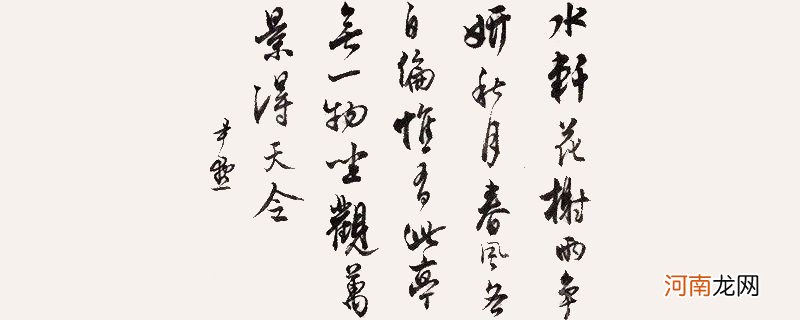 水軒花榭兩爭
妍秋月春風各
自偏惟有此亭
無一物坐觀萬
景得天全
尹默
河南龙网